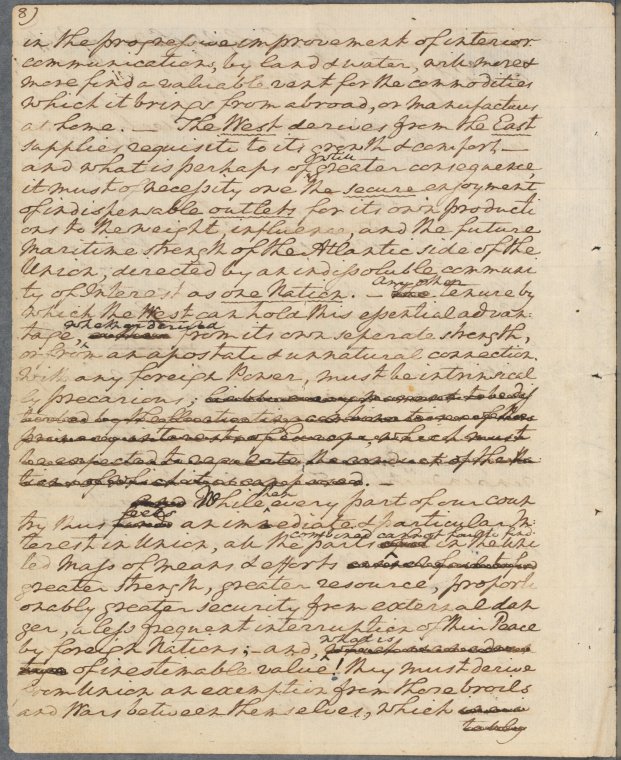 8)
in the progressive improvement of interior
communications, by land & water, will more &
more find a valuable vent for the commodities
which it brings from abroad, or manufactures
at home. — The West derives from the East
supplies requisite to its growth & comfort, —
and what is perhaps of still greater consequence,
it must of necessity owe the secure enjoyment
of indispensable outlets for its own producti
ons to the weight, influence, and the future
maritime strength of the Atlantic side of the
Union, directed by an indissoluble communi
ty of Interest as one Nation. — any other tenure by
which the West can hold this essential advan
tage, whether derived from its own seperate strength,
or from an apostate & unnatural connection
with any foreign Power, must be intrinsical
ly precarious;
be expected to regulate the conduct of the Na
tions of which it is composed. —
While then every part of our coun
try thus feels an immediate & particular In
terest in Union, all the parts combined cannot fail to find in the uni
ted mass of means & efforts
greater strength, greater resource, proporti
onably greater security from external dan
ger, a less frequent interruption of their Peace
by foreign Nations; — and, what is
of inestimable value! they must derive
from Union an exemption from those broils
and Wars between themselves, which